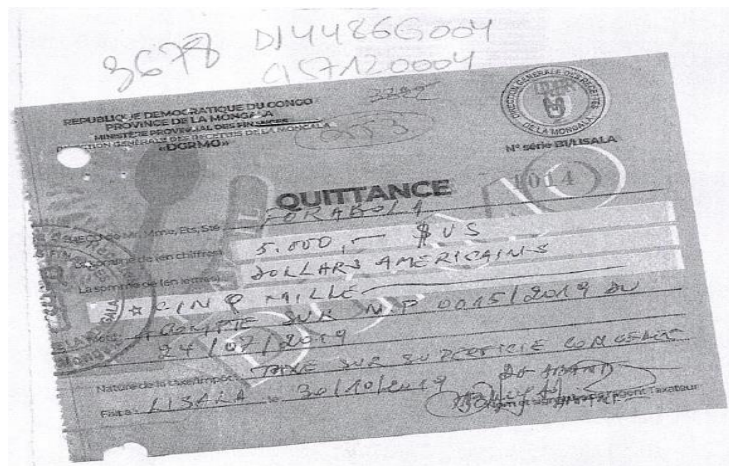 3678 D14486G004
3292
REPUBLIQUE DEMOCRATIQUE DU CONGO
PROVINCE DE LA MONGALA
MINISTERE PROVINCIAL DES FINANCES
DIRECTION GENERALE DES RECETTES DE LA MONGALA
«DGRMO»
DIRECTION GENERALE DES RECETTES
DE LA MONGALA
N° série B1/LISALA
QUITTANCE
1014
Mr, Mme, Ets, Sté FORABOLA
La somme de (en chiffres) 5.000,— $US
La somme de (en lettres) DOLLARS AMERICAINS
CINQ MILLE
ACOMPTE SUR N.P 0015/2019 DU
24/07/2019
Nature de la taxe/Impôt TAXE SUR SUPERFICIE CONCEDEE
Fait à LISALA le 30/10/2019
Agent Taxateur